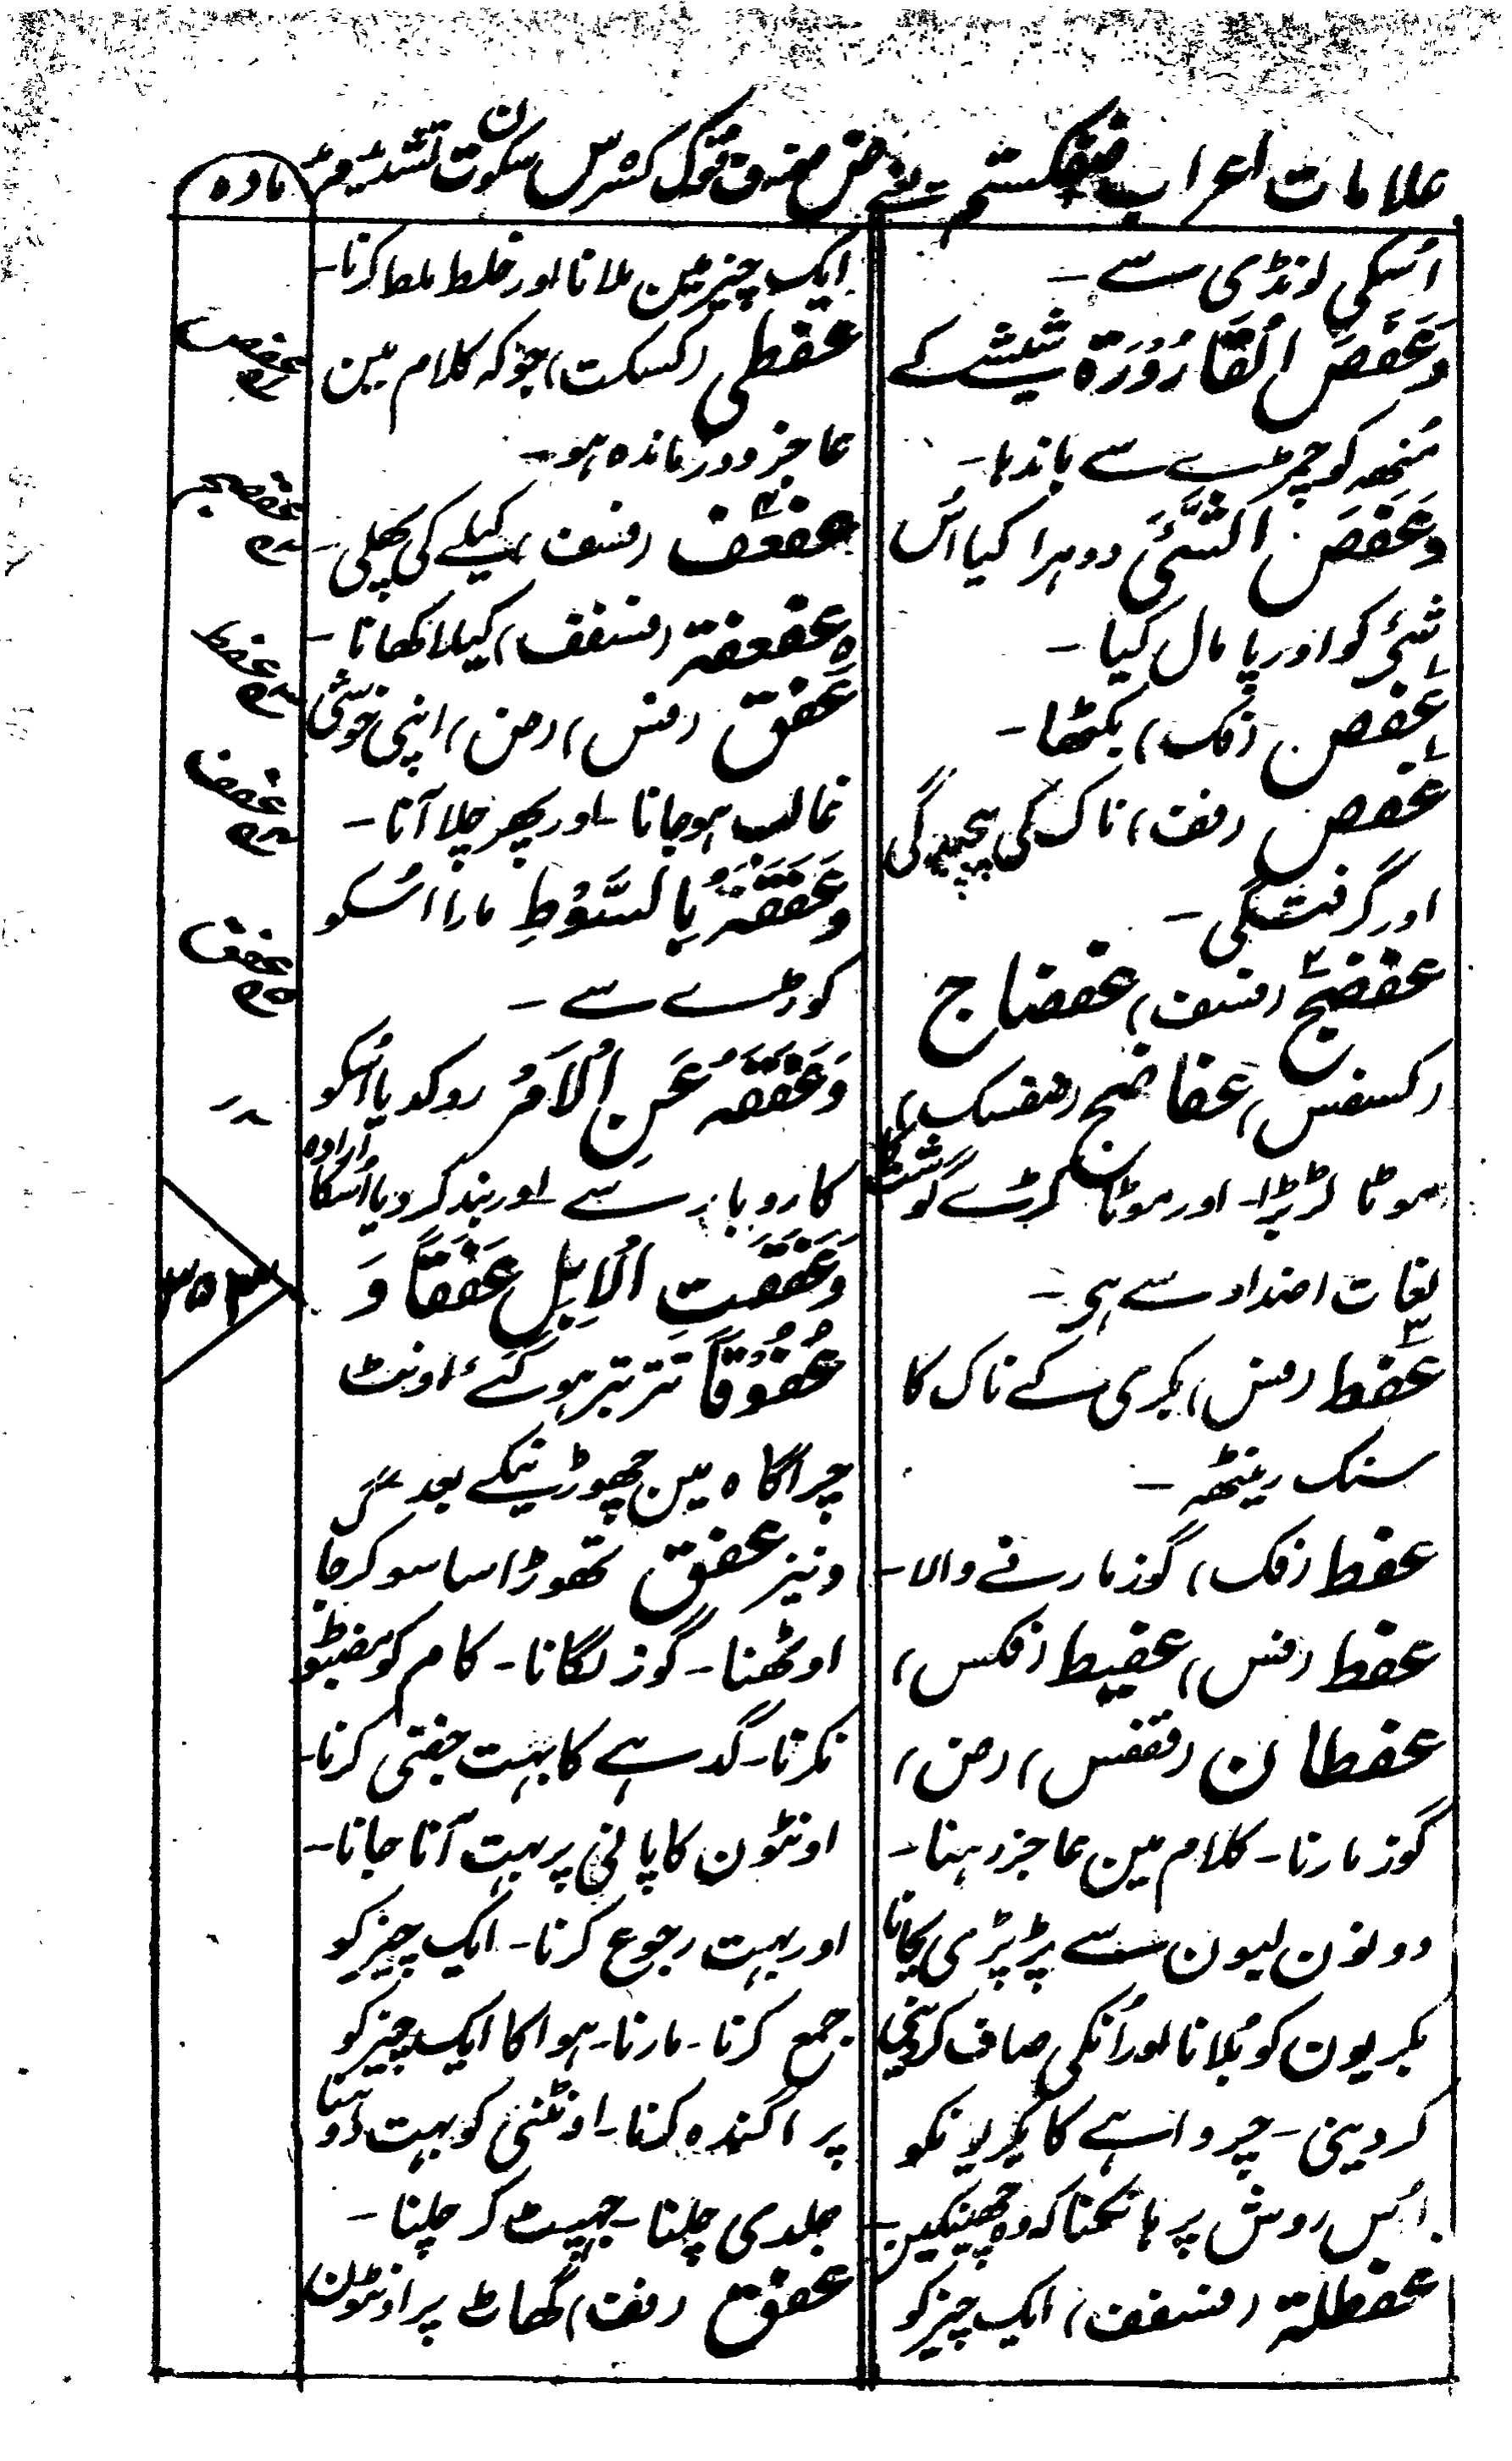 علامات اعراب
مادہ
اُسکی لونڈی سے۔
وَعَفَصَ الْقَارُوْرَۃَ شیشے کے
مُنھہ کو چمڑے سے باندہا۔
وَعَفَصَ الشَّیَٔ دوہرا کیا اُس
شئ کو اور پامال کیا۔
عفص (فک) بکٹھا۔
عفص (فف) ناک کی پیچیدگی
اور گرفتگی۔
عفضج (فسف) عفضاج
(کسفس) عفاضج
موٹا لڑبڑا۔ اور موٹا کڑے گوشت کا
لغات اضداد سے ہی۔
عفط (فس) بکری کے ناک کا
سنک رینٹھہ۔
عفط (فک) گوز مارنے والا۔
عفط (فس) عفیط (فکس)
عفطان (فففس) (ض)
گوز مارنا۔ کلام مین عاجز رہنا۔
دونون لبون سے پڑپڑی بجانا
بکریون کو بُلانا اور اُنکی صاف کردینی
کردینی۔ چرواہے کا بکریونکو
اُس روش پر ہانکنا کہ وہ چھینکین۔
عفطلۃ (فسفف) ایک چیز کو
ایک چیز مین ملانا اور خلط ملط کرنا۔
عفطی (کسکت) جو کہ کلام مین
عاجز و درماندہ ہو۔
عفعف (فسف) کیلے کی پھلی۔
عفعفۃ (فسفف) کیلا کھانا۔
عفق (فس) (ض) اپنی خوشی
غالب ہوجانا۔ اور پھر چلا آنا۔
وَعَفَقَہُ بِالسَّوْطِ مارا اُسکو
کوڑے سے۔
وَعَفَقَہُ عَنِ الْاَمْرِ روکدیا اُسکو
کاروبار سے اور بند کردیا اُسکا ارادہ
وَعَفَقَتِ الْاِبِلُ عَفْقًا وَ
عُفُوْقًا تتر بتر ہوگئے اونٹ
چراگاہ مین چھوڑنیکے بعد
ونیز عفق تھوڑا سا سوکر جا
اوٹھنا۔ گوز لگانا۔ کام کو مضبوط
نکرنا۔ گدہے کا بہت جفتی کرنا۔
اونٹون کا پانی پر بہت آنا جانا۔
اور بہت رجوع کرنا۔ ایک چیز کو
جمع کرنا۔ مارنا۔ ہوا کا ایک چیز کو
پراگندہ کرنا۔ اونٹنی کو بہت دوہنا
جلدی چلنا۔ جھپٹ کر چلنا۔
عفق (فف) گھاٹ پر اونٹون
عفص
عفضج
عفط
عفعف
عفق